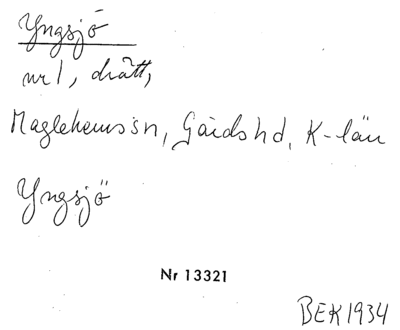 Yngsjö
nr 1, drätt,
Maglehems sn, Gärds hd, K-län
Yngsjö
Nr 13321
BEK 1934